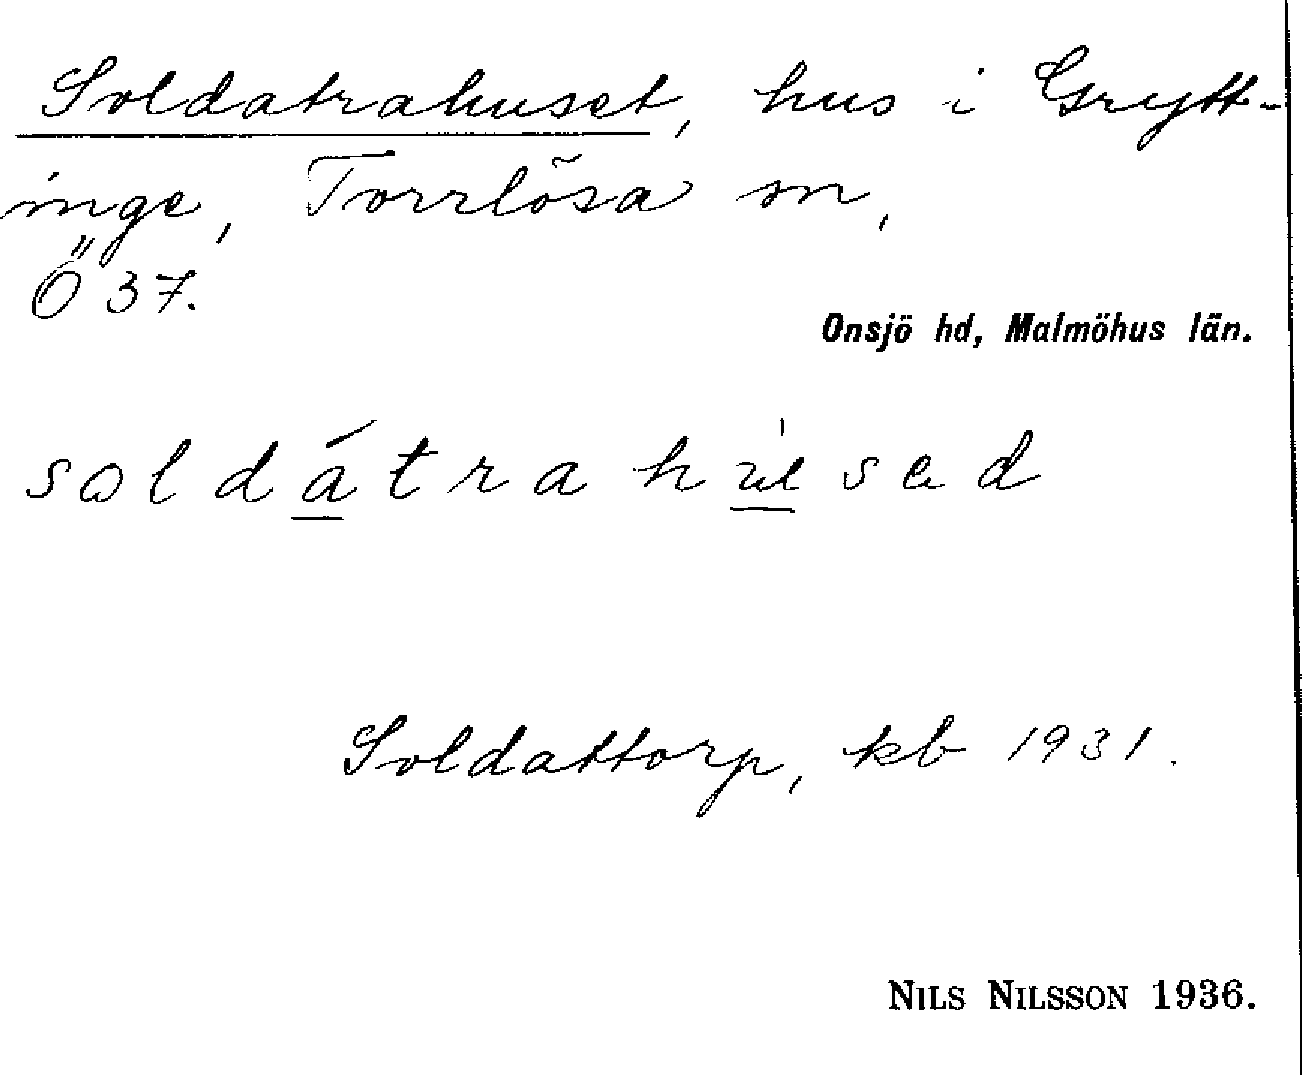 Soldatrahuset, hus i Grytt-
inge, Torrlösa sn,
Ö 37.
Onsjö hd, Malmöhus län.
soldátrahúsed
Soldattorp, kb 1931.
NILS NILSSON 1936.